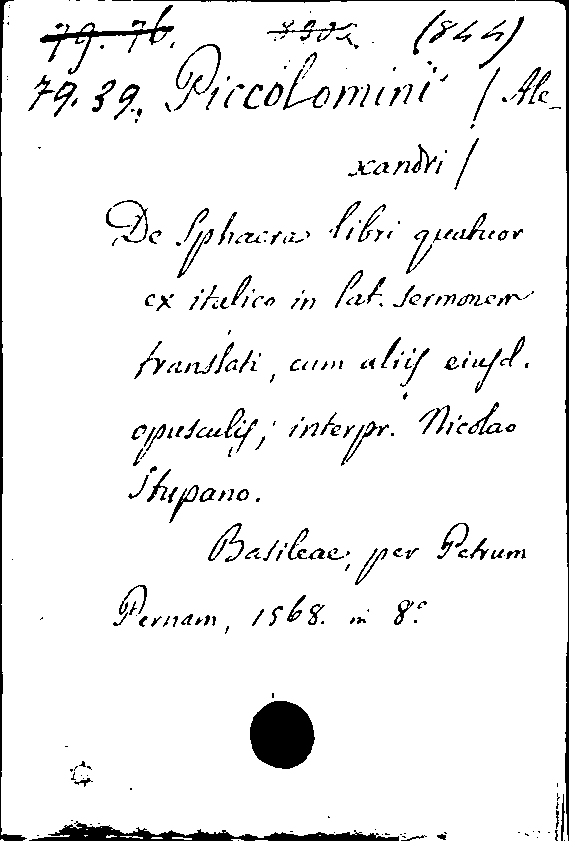 79. 76. (844)
79. 39. Piccolomini / Ale-
xandri /
De Sphaera libri quatuor
ex italico in lat. sermonem
translati, cum aliis eiusd.
opusculis; interpr. Nicolao
Stupano.
Basileae, per Petrum
Pernam, 1568. in 8.°